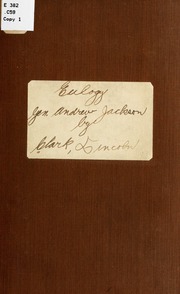 E 382
.C59
Copy 1
Eulogy
Gen Andrew Jackson
by
Clark, Lincoln